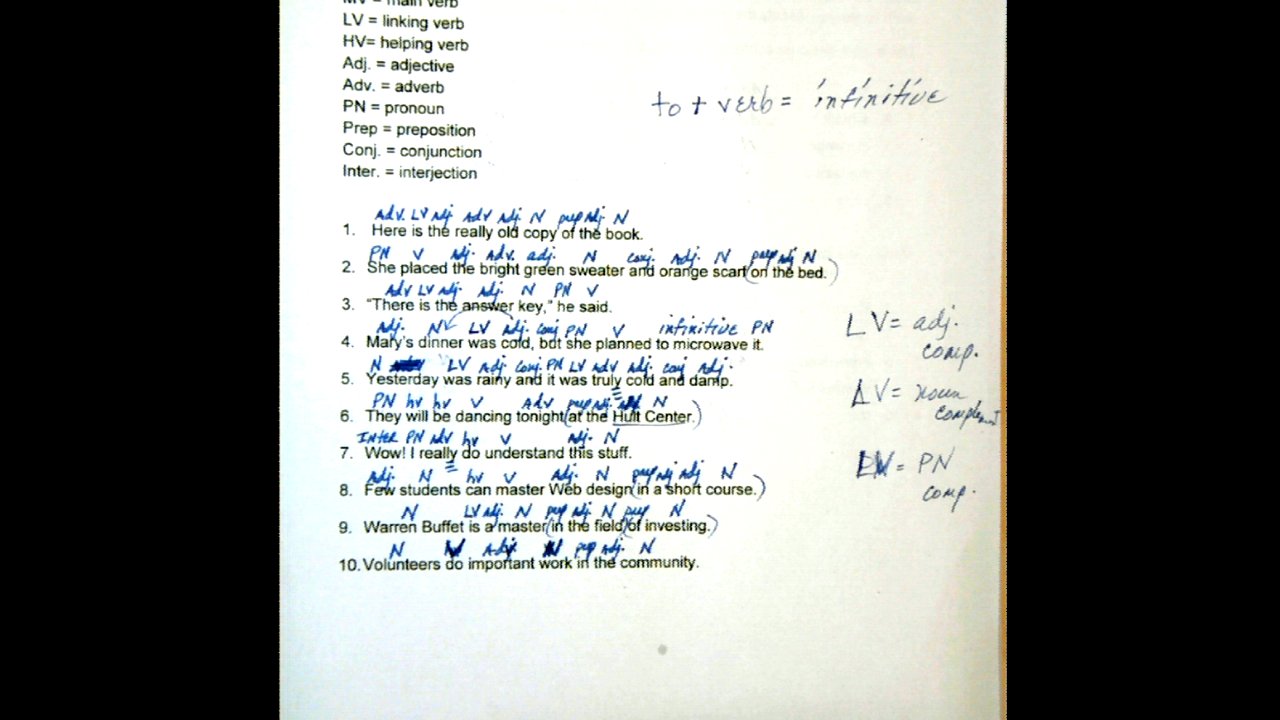 MV = main verb
LV = linking verb
HV= helping verb
Adj. = adjective
Adv. = adverb
to + verb = infinitive
PN = pronoun
Prep = preposition
Conj. = conjunction
Inter. = interjection
Adv. LV Adj. Adv Adj. N prep Adj. N
1. Here is the really old copy of the book.
PN V Adj. Adv. adj. N conj. Adj. N prep adj N
2. She placed the bright green sweater and orange scarf (on the bed.)
Adv LV Adj. Adj. N PN V
3. "There is the answer key," he said.
Adj. N LV Adj. conj PN V infinitive PN
4. Mary's dinner was cold, but she planned to microwave it.
LV = adj. comp.
N LV Adj. conj. PN LV Adv Adj. conj Adj.
5. Yesterday was rainy and it was truly cold and damp.
LV = noun complement
PN hv hv V Adv prep adj. N
6. They will be dancing tonight (at the Hult Center.)
Inter PN adv hv V adj. N
7. Wow! I really do understand this stuff.
LV = PN comp.
Adj. N hv V Adj. N prep adj adj N
8. Few students can master Web design (in a short course.)
N LV adj. N prep adj. N prep N
9. Warren Buffet is a master (in the field) (of investing.)
N V Adj. N prep adj. N
10. Volunteers do important work in the community.